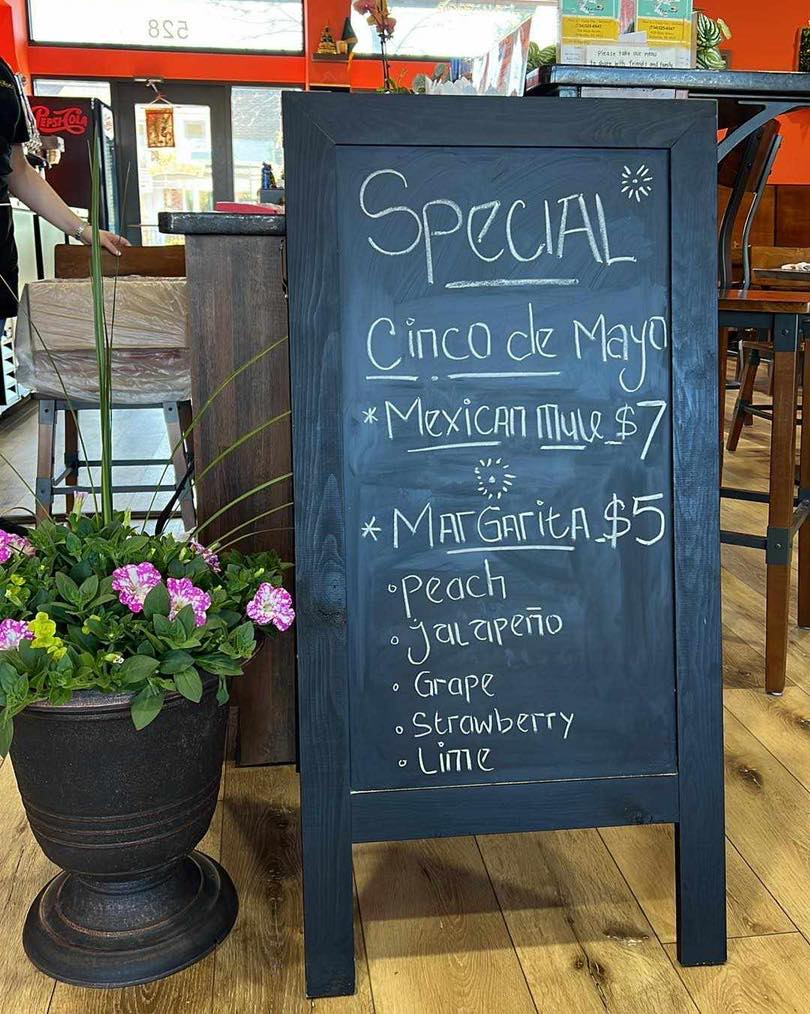 528
PEPSI-COLA
Please take our menu
to share with friends and family
SPECIAL
Cinco de Mayo
* Mexican mule $7
* Margarita $5
◦ Peach
◦ jalapeño
◦ Grape
◦ Strawberry
◦ Lime